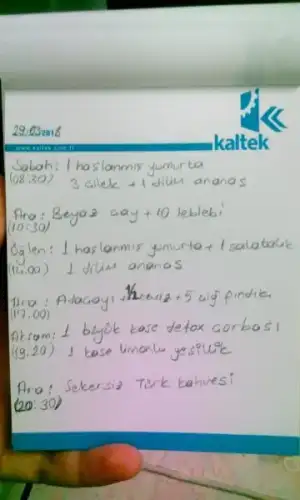 29.03.2018
kaltek
www.kaltek.com.tr
Sabah: 1 haşlanmış yumurta
(08:30) 3 çilek + 1 dilim ananas
Ara: Beyaz çay + 10 leblebi
(10:30)
Öğlen: 1 haşlanmış yumurta + 1 salatalık
(14.00) 1 dilim ananas
Ara: Adaçayı + 1/2 + 5 çiğ fındık
(17.00)
Akşam: 1 büyük kase detox çorbası
(19.20) 1 kase limonlu yeşillik
Ara: Şekersiz Türk kahvesi
(20:30)